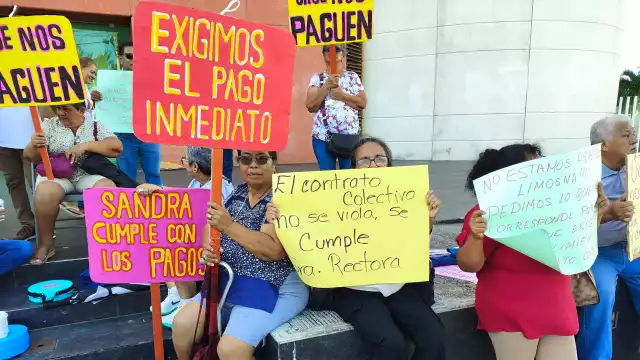 E NOS
PAGUEN
EXIGIMOS
EL PAGO
INMEDIATO
PAGUEN
SANDRA
CUMPLE CON
LOS PAGOS
El contrato
Colectivo
no se viola, se
Cumple
Rectora
NO ESTAMOS
LIMOSNA!!!
PEDIMOS LO QUE
CORRESPONDE POR